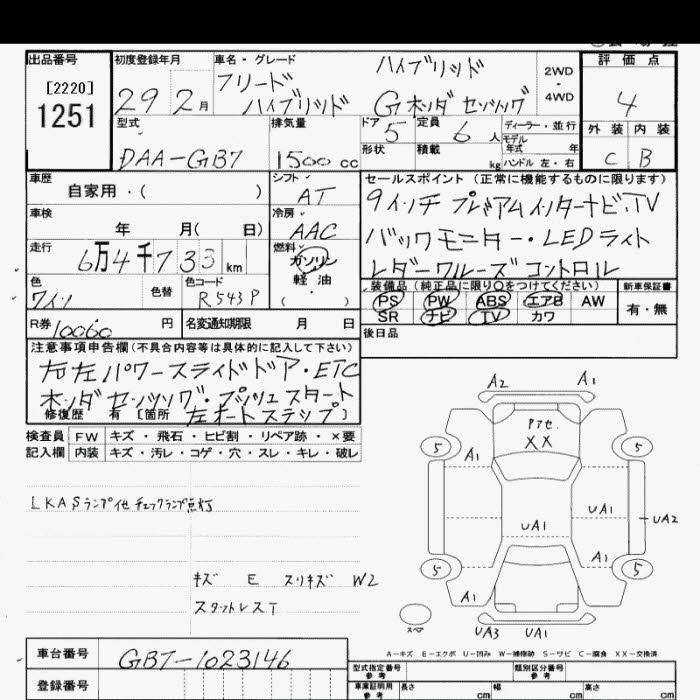 出品番号 初度登録年月 車名・グレード 評価点
[2220]
1251
29 2月
フリード ハイブリッド
ハイブリッド Gホンダセンシング
2WD
・
4WD
4
外装 内装
C B
型式 排気量 ドア 定員 ディーラー・並行
DAA-GB7 1500cc 5 6人
モデル年式 年
形状 積載 kg ハンドル 左・右
車歴 シフト セールスポイント(正常に機能するものに限ります)
自家用・( ) AT
9インチプレミアムインターナビ.TV
車検 冷房
年 月( 日) AAC
バックモニター・LEDライト
走行 燃料
6万4千733km ガソリン・軽油・( )
レダークルーズコントロール
色 色替 色コード
ワイン R543P
装備品(純正品に限り○をつけてください) 新車保証書
PS PW ABS エアB AW 有・無
SR ナビ TV カワ
R券 10060円 名変通知期限 月 日
後日品
注意事項申告欄(不具合内容等は具体的に記入して下さい)
右左パワースライドドア・ETC
ホンダセンシング・プッシュスタート
修復歴 有 [箇所 左オートステップ]
検査員 FW キズ・飛石・ヒビ割・リペア跡・×要
記入欄 内装 キズ・汚レ・コゲ・穴・スレ・キレ・破レ
LKASランプ他チェックランプ点灯
キズ E スリキズ W2
スタットレスT
A2 A1
XX
5 A1 5
UA1 UA1 UA2
5 A1 5
A1
スペア
UA3 UA1
A-キズ E-エクボ U-凹み W-補修跡 S-サビ C-腐食 XX-交換済
車台番号 GB7-1023146
登録番号
型式指定番号 参考 類別区分番号 参考
車庫証明用 参考 長さ cm 幅 cm 高さ cm